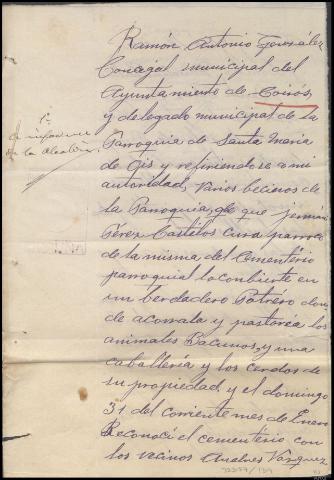 Ramón Antonio Gonzalez
Concejal municipal del
Ayuntamiento de Coirós,
y delegado municipal de la
Parroquia de Santa Maria
de Ois y refiriendose a mi
autoridad, varios becinos de
la Parroquia, de que
Pérez Castelos Cura parroco
de la misma del Cementerio
parroquial lo conbierte en
un berdadero Potrero don
de acorrala y pastorea los
animales Bacunos, y una
caballería y los cerdos de
su propiedad y el domingo
31 del corriente mes de Enero
Reconocí el cementerio con
los vecinos Andres Vazquez
1º
A informe
de la Alcaldia